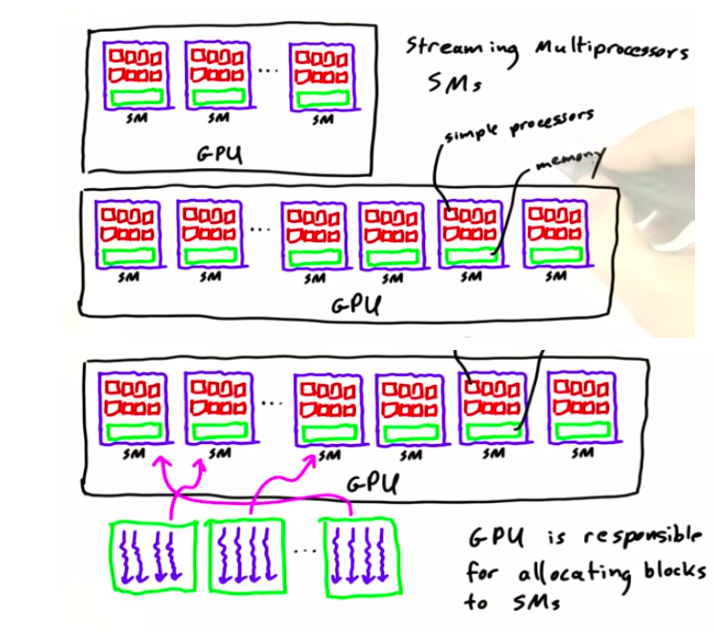 Streaming Multiprocessors
SMs
SM SM SM
GPU
simple processors
memory
SM SM SM SM SM SM
GPU
SM SM SM SM SM SM
GPU
GPU is responsible
for allocating blocks
to SMs